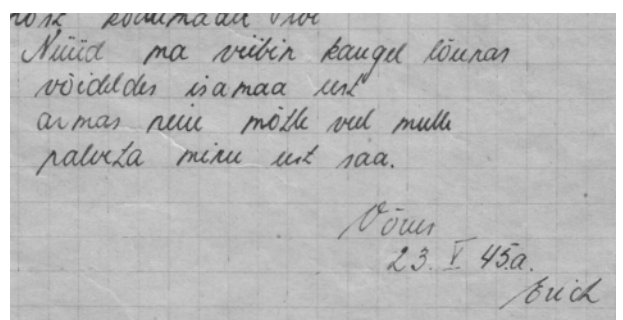 Nüüd ma viibin kaugel lõunas
võideldes isamaa eest
armas neiu mõtle veel mulle
palveta minu eest saa.
Võrus
23. V 45.a.
Erich